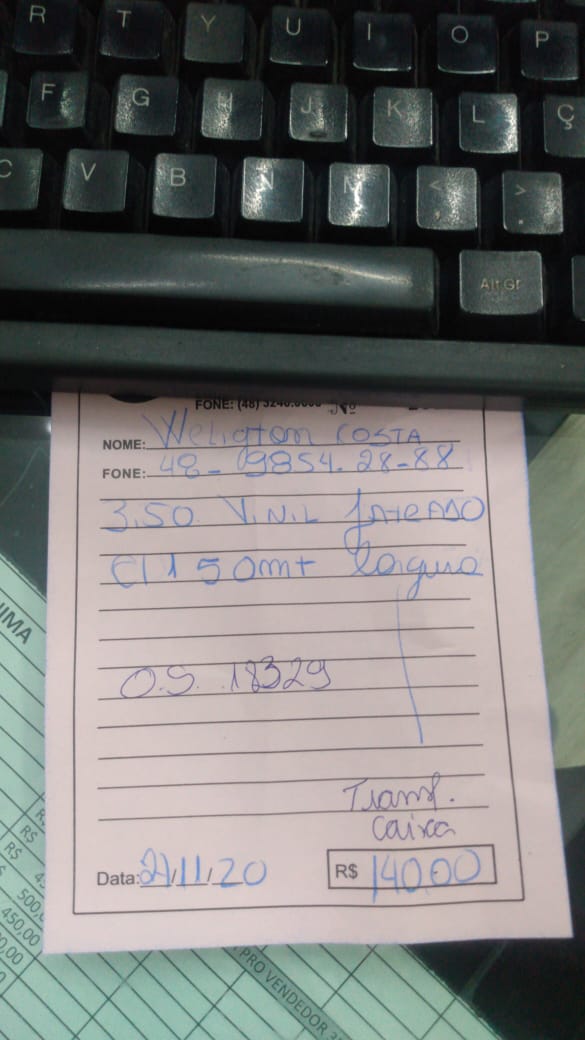 R T Y U I O P
F G H J K L Ç
C V B N M < , > .
Alt Gr
FONE: (48) 3240.6060 Nº
NOME: Weligton COSTA
FONE: 48-9854.28-88
3,50 ViNiL JATEADO
C/ 1 50mt largura
O.S. 18329
Transf.
Caixa
Data: 27/11/20 R$ 140,00
IMA
R$
R$
R$
500,
450,00
PRO VENDEDOR